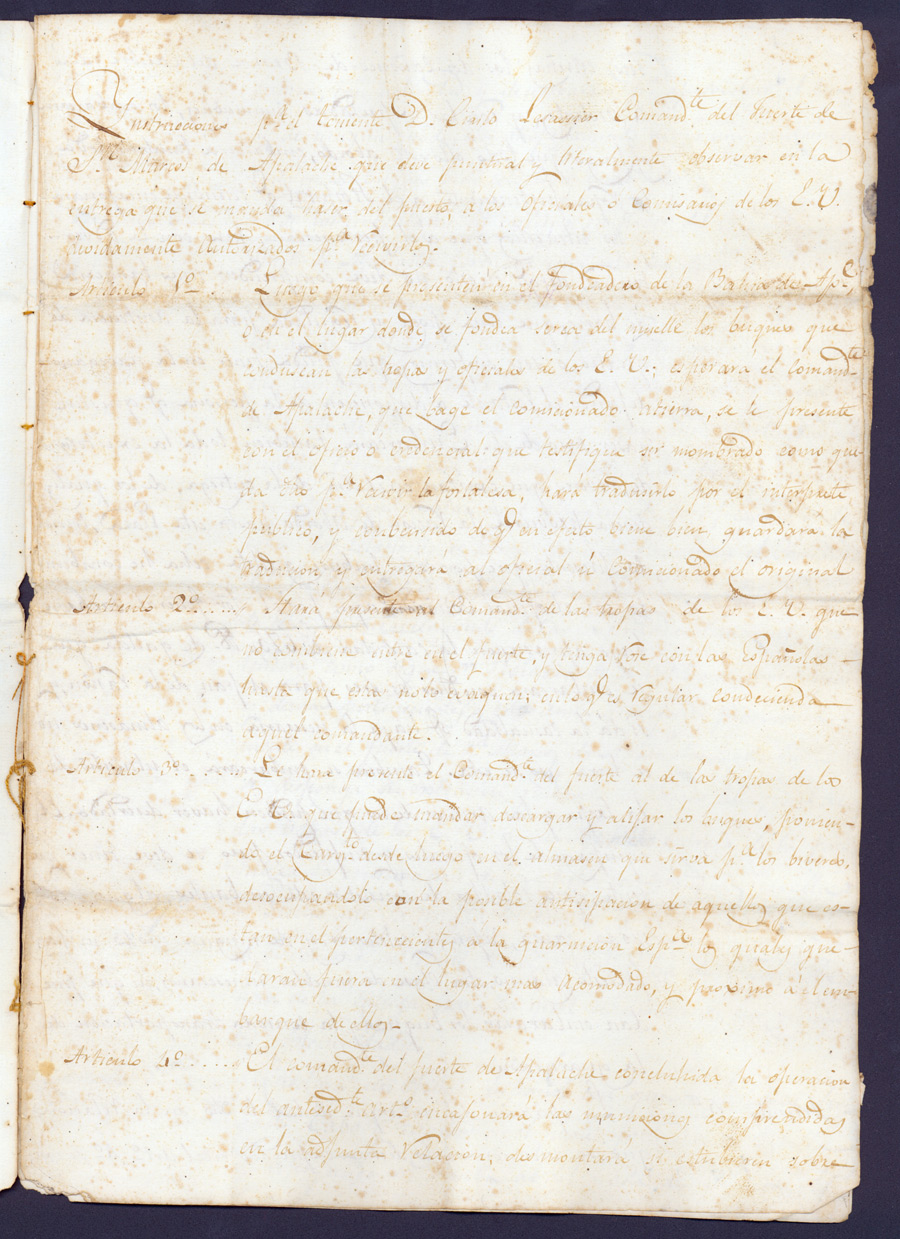 Ynstrucciones pª el teniente D. Carlo Comandte del Fuerte de
Sn Marcos de Apalache que deve puntual y literalmente observar en la
entrega que se manda haser del puesto, á los Oficiales o Comisarios de los E. U.
devidamente autorizados pª recivirlos.
Articulo 1º.... Luego que se presenten en el fondeadero de la Bahia de Apª
ó de el lugar donde se fondea serca del muelle los buques que
conduscan las tropas y oficiales de los E. U.; esperará el comandte
de Apalache, que bage el comicionado atierra, se le presente
con el oficio o credencial que testifique ser nombrado como que-
da dho pª recivir la fortalesa, hará tradusirlo por el interprete
publico, y conbensido de q en efecto biene bien guardará la
traducion y entregará al oficial ú comicionado el original
Articulo 2º..... Hará presente al Comandte de las tropas de los E. U. que
no combiene entre en el fuerte, y tenga rose con las Españolas
hasta que estas no lo evaquen; en lo q es regular condecienda
aquel comandante.
Articulo 3º.... Le hara presente el Comandte del fuerte al de las tropas de los
E. U. que puede mandar descargar y alijar los buques, ponien-
do el Cargto desde luego en el almasen que sirva pª los biveres,
desocupandolo con la posible antisipacion de aquellos que es-
tan en el pertenecientes á la guarnicion Espª los quales que-
daran fuera en el lugar mas acomodado, y proximo al em-
barque de ellos.
Articulo 4º..... El comandte del fuerte de Apalache concluhida la operacion
del antesedte arto encajonará las municiones comprendidas
en la adjunta relacion, desmontará si estubieren sobre